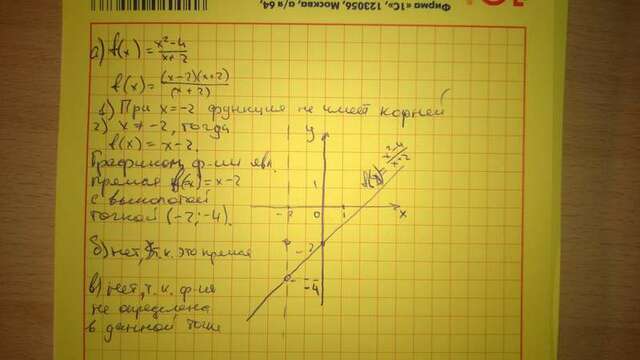 Фирма «1С», 123056, Москва, а/я 64,
а) f(x) = x²-4 / x+2
f(x) = (x-2)(x+2) / (x+2)
1) При x=-2 функция не имеет корней
2) x ≠ -2, тогда
f(x) = x-2.
Графиком ф-ии явл.
прямая f(x) = x-2
с выколотой
точкой (-2; -4).
б) нет, т.к. это прямая
в) нет, т.к. ф-ия
не определена
в данной точке
y
1
-2 0 1 x
-2
-4
f(x) = x²-4 / x+2